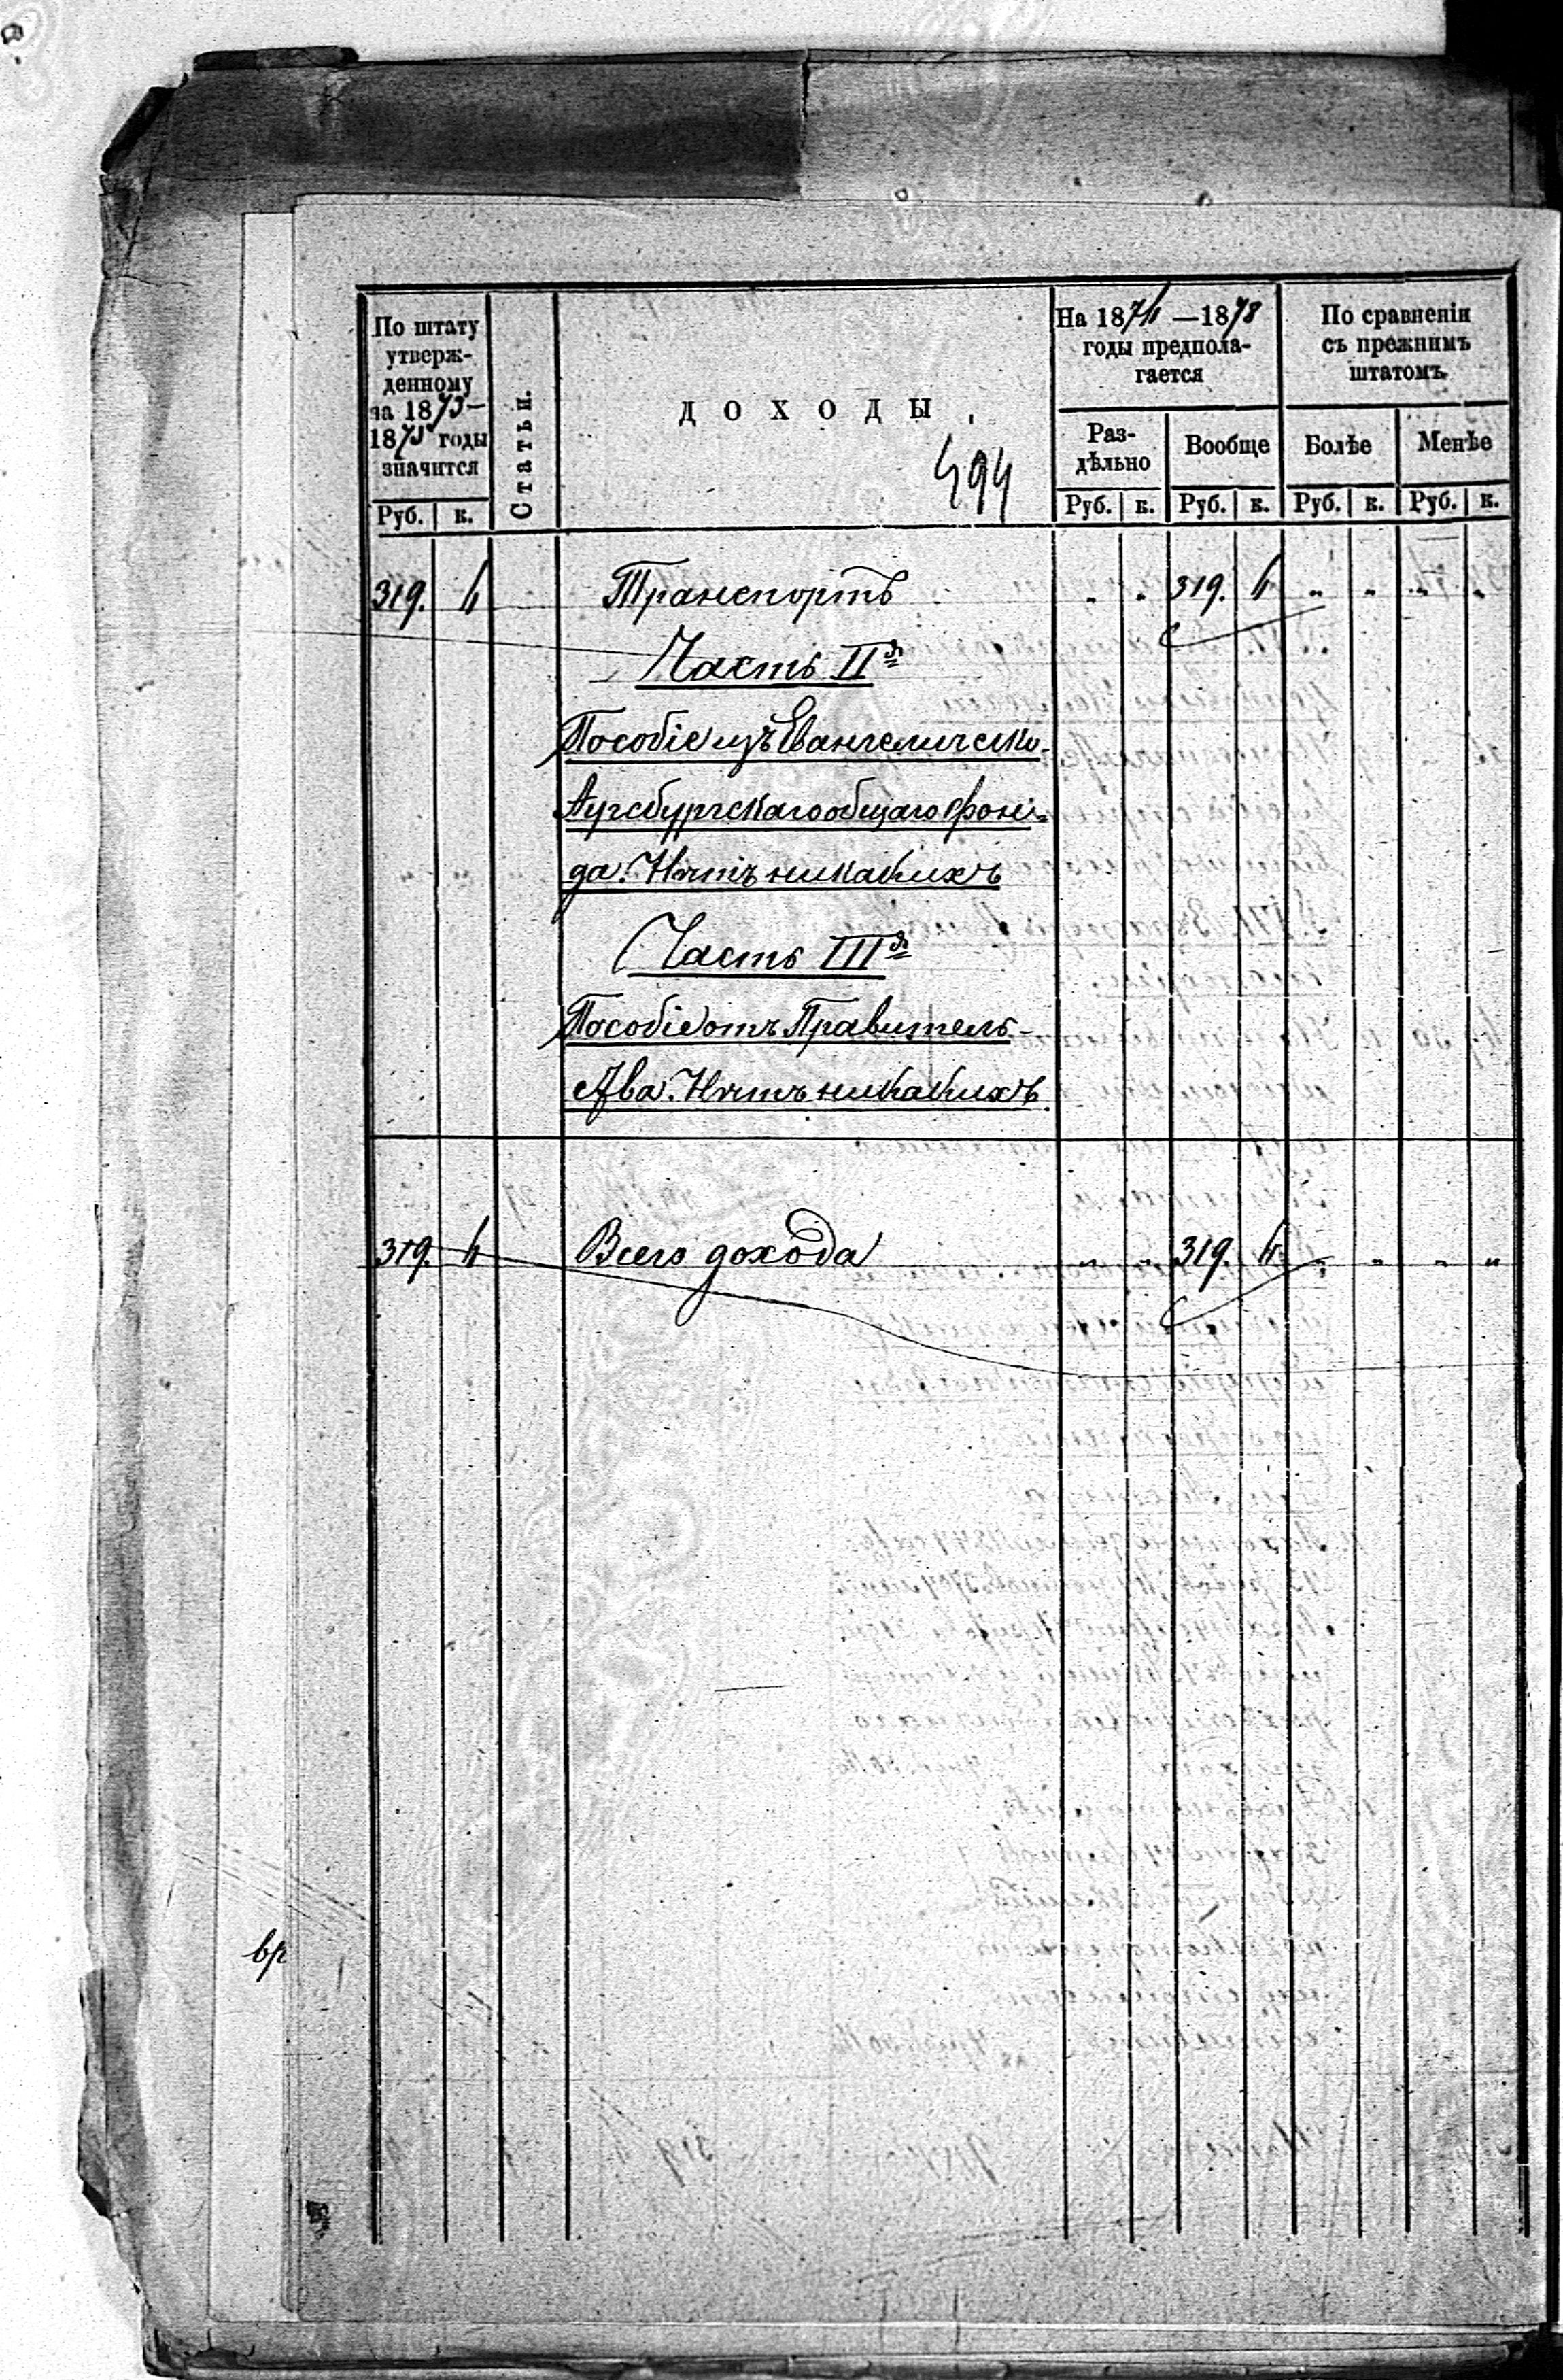 По штату
утверж-
денному
на 1873-
1875 годы
значится
Статьи.
ДОХОДЫ.
494
На 1876 —1878
годы предпола-
гается
По сравненіи
съ прежнимъ
штатомъ
Раз-
дѣльно
Вообще
Болѣе
Менѣе
Руб. к.
Руб. к. Руб. к. Руб. к. Руб. к.
319. 4 Транспортъ „ „ 319. 4 „ „ „ „
Часть IIя
Пособіе изъ Евангелическо-
Аугсбургскаго общаго фон-
да. Нѣтъ никакихъ
Часть IIIя
Пособіе отъ Правитель-
ства. Нѣтъ никакихъ
319. 4 Всего дохода „ „ 319. 4 „ „ „ „
вр